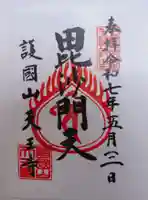 奉拝令和七年五月二日
毘沙門天
護國山天王寺